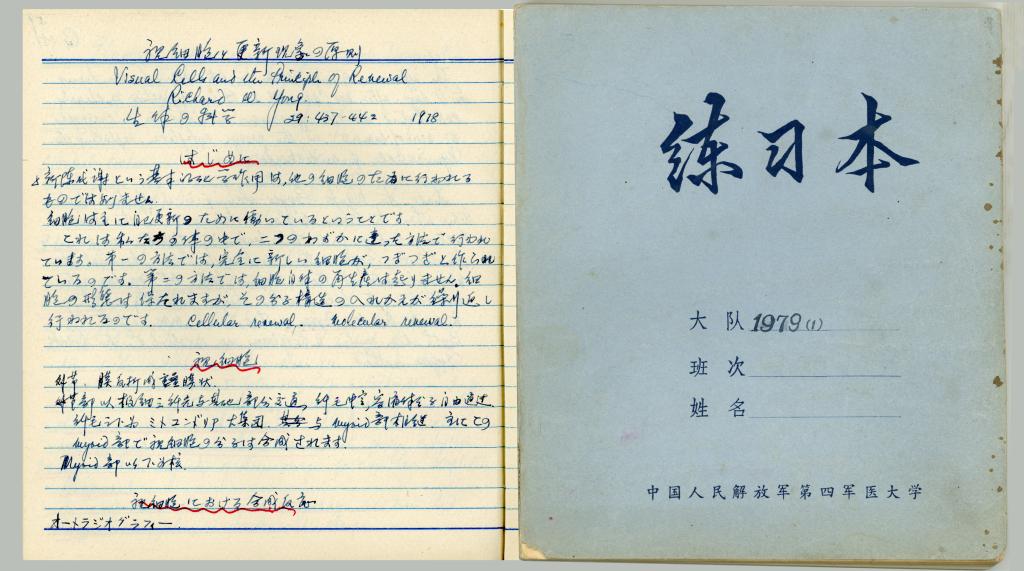 視細胞と更新現象の原則
Visual Cells and the Principle of Renewal
Richard W. Young
生体の科学 29:437-442 1978
はじめに
新陳代謝という基本的な作用は、他の細胞のために行われる
ものではありません。
細胞は主に自己更新のために働いているということです。
これは私たちの体の中で、二つのわずかに違った方法で行われ
ています。第一の方法では、完全に新しい細胞が、つぎつぎと作られ
ているのです。第二の方法では、細胞自体の再生産は起りません。細
胞の形態は保たれますが、その分子構造の入れかえが繰り返し
行われるのです。 Cellular renewal. molecular renewal.
視細胞
外节、膜
ミトコンドリア大集団 与 myoid 部相继
myoid 部で視細胞の分子は合成されます。
Myoid 部以下为核.
視細胞における合成反応
オートラジオグラフィー
练习本
大队 1979(1)
班次
姓名
中国人民解放军第四军医大学